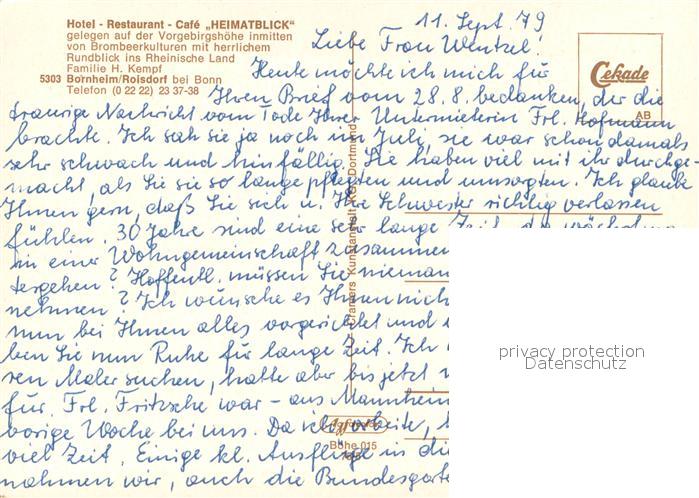 Hotel - Restaurant - Café „HEIMATBLICK"
gelegen auf der Vorgebirgshöhe inmitten
von Brombeerkulturen mit herrlichem
Rundblick ins Rheinische Land
Familie H. Kempf
5303 Bornheim/Roisdorf bei Bonn
Telefon (0 22 22) 23 37-38
Cekade
AB
11. Sept. 79
Liebe Frau Wentzel!
Heute möchte ich mich für
Ihren Brief vom 28.8. bedanken, der die
traurige Nachricht vom Tode Ihrer Untermieterin Frl. Hofmann
brachte. Ich sah sie ja noch im Juli, sie war schon damals
sehr schwach und hinfällig. Sie haben viel mit ihr durchge-
macht, als Sie sie so lange pflegten und umsorgten. Ich glaube
Ihnen gern, daß Sie sich u. Ihre Schwester richtig verlassen
fühlen. 30 Jahre sind eine sehr lange Zeit,
in einer Wohngemeinschaft zusammen
tergehen? Hoffentl. müssen Sie nieman
nehmen? Ich wünsche es Ihnen nich
nun bei Ihnen alles vorgerichtet und
ben Sie nun Ruhe für lange Zeit. Ich
ren Maler suchen, hatte aber bis jetzt
für. Frl. Fritzsche war - aus Mannheim
vorige Woche bei uns. Da ich arbeite,
viel Zeit. Einige kl. Ausflüge in di
nahmen wir, auch die Bundesgart
Cramers Kunstanstalt KG, Dortmund
Bohe 015
privacy protection
Datenschutz